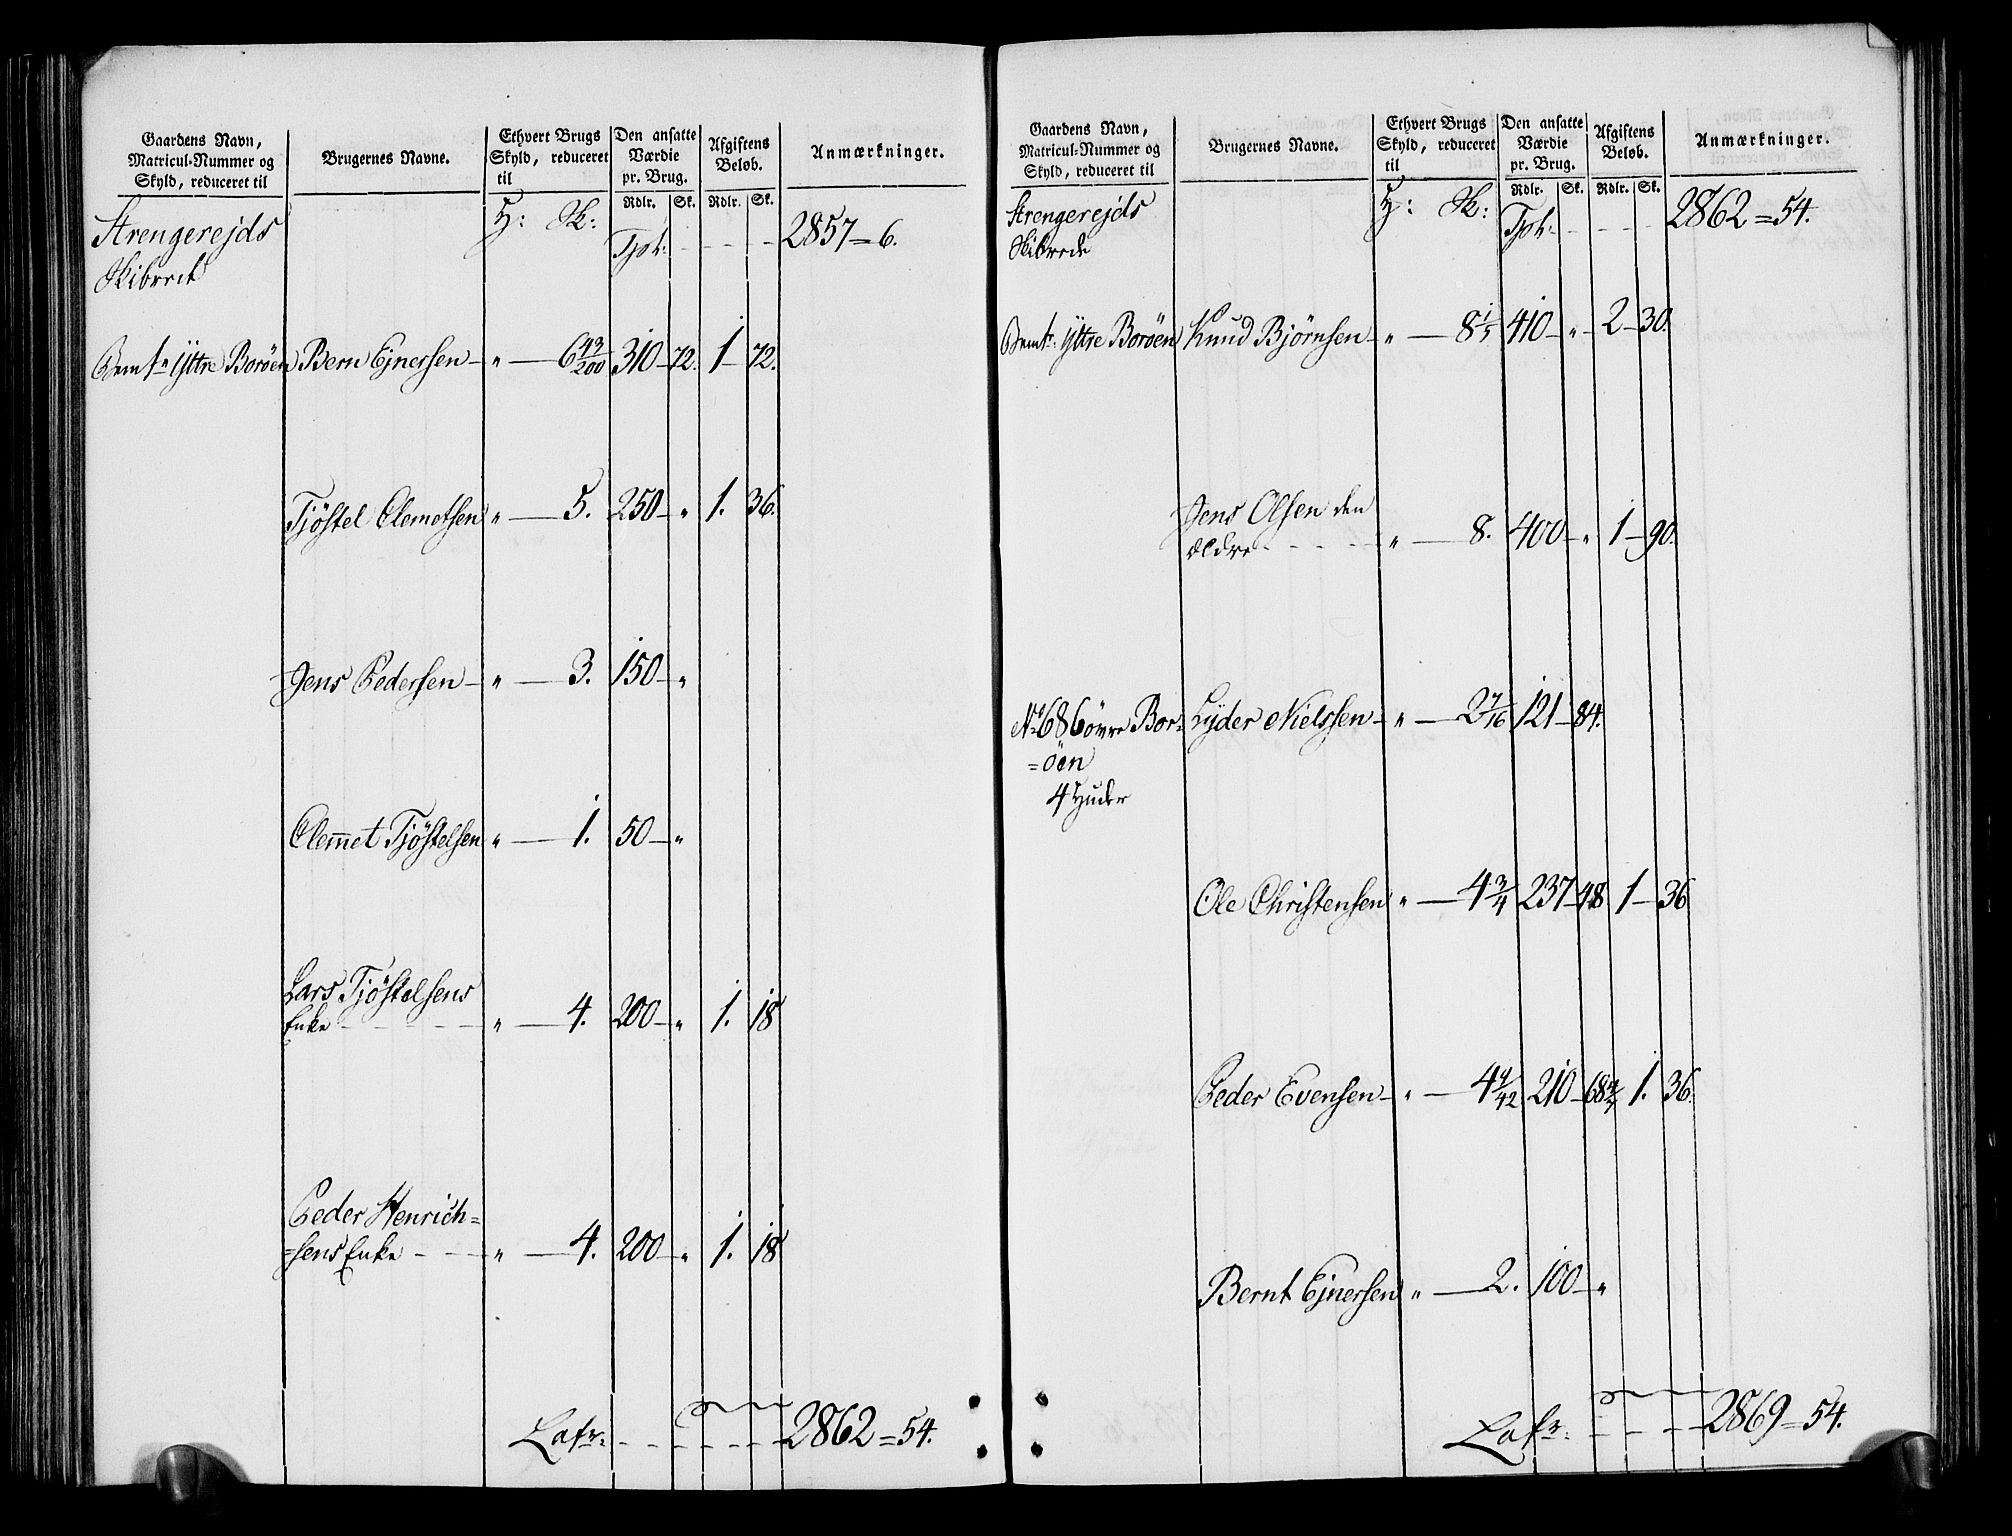 Gaardens Navn,
Matricul-Nummer og
Skyld, reduceret til
Brugernes Navne.
Ethvert Brugs
Skyld, reduceret
til
Den ansatte
Værdie
pr. Brug.
Afgiftens
Beløb.
Anmærkninger.
Rdlr. Sk. Rdlr. Sk.
Strengerejds
Skibred
H: Sk: Tpt: 2857=6.
Bem.te Yttre Borøen Bern Ejnersen — " — 6 43/200 310 — 72. 1 — 72.
Tjöstel Clemetsen " — 5. 250 — " 1. 36.
Jens Pedersen — " — 3. 150 — "
Clemet Tjöstelsen " — 1. 50 — "
Lars Tjöstelsens
Enke - - - " — 4. 200 — " 1. 18
Peder Henrich=
=sens Enke - - " — 4. 200 — " 1. 18
Lafr: - - - - 2862=54.
Gaardens Navn,
Matricul-Nummer og
Skyld, reduceret til
Brugernes Navne.
Ethvert Brugs
Skyld, reduceret
til
Den ansatte
Værdie
pr. Brug.
Afgiftens
Beløb.
Anmærkninger.
Rdlr. Sk. Rdlr. Sk.
Strengerejds
Skibrede
H: Sk: Tpt: - - - - 2862=54.
Bemte: Yttre Borøen Knud Bjørnsen — " — 8 1/5 410 — " 2 — 30.
Jens Olsen den
ældre - - - - " — 8. 400 — " 1 — 90.
No 686 övre Bor= Lyder Nielssen — " — 2 7/16 121 — 84.
=öen
4 Huder
Ole Christensen " — 4 3/4 237 — 48 1 — 36
Peder Evensen — " — 4 9/42 210 — 68 4/7 1. 36.
Bernt Ejnersen " — 2. 100 — "
Lafr: - - - 2869=54.